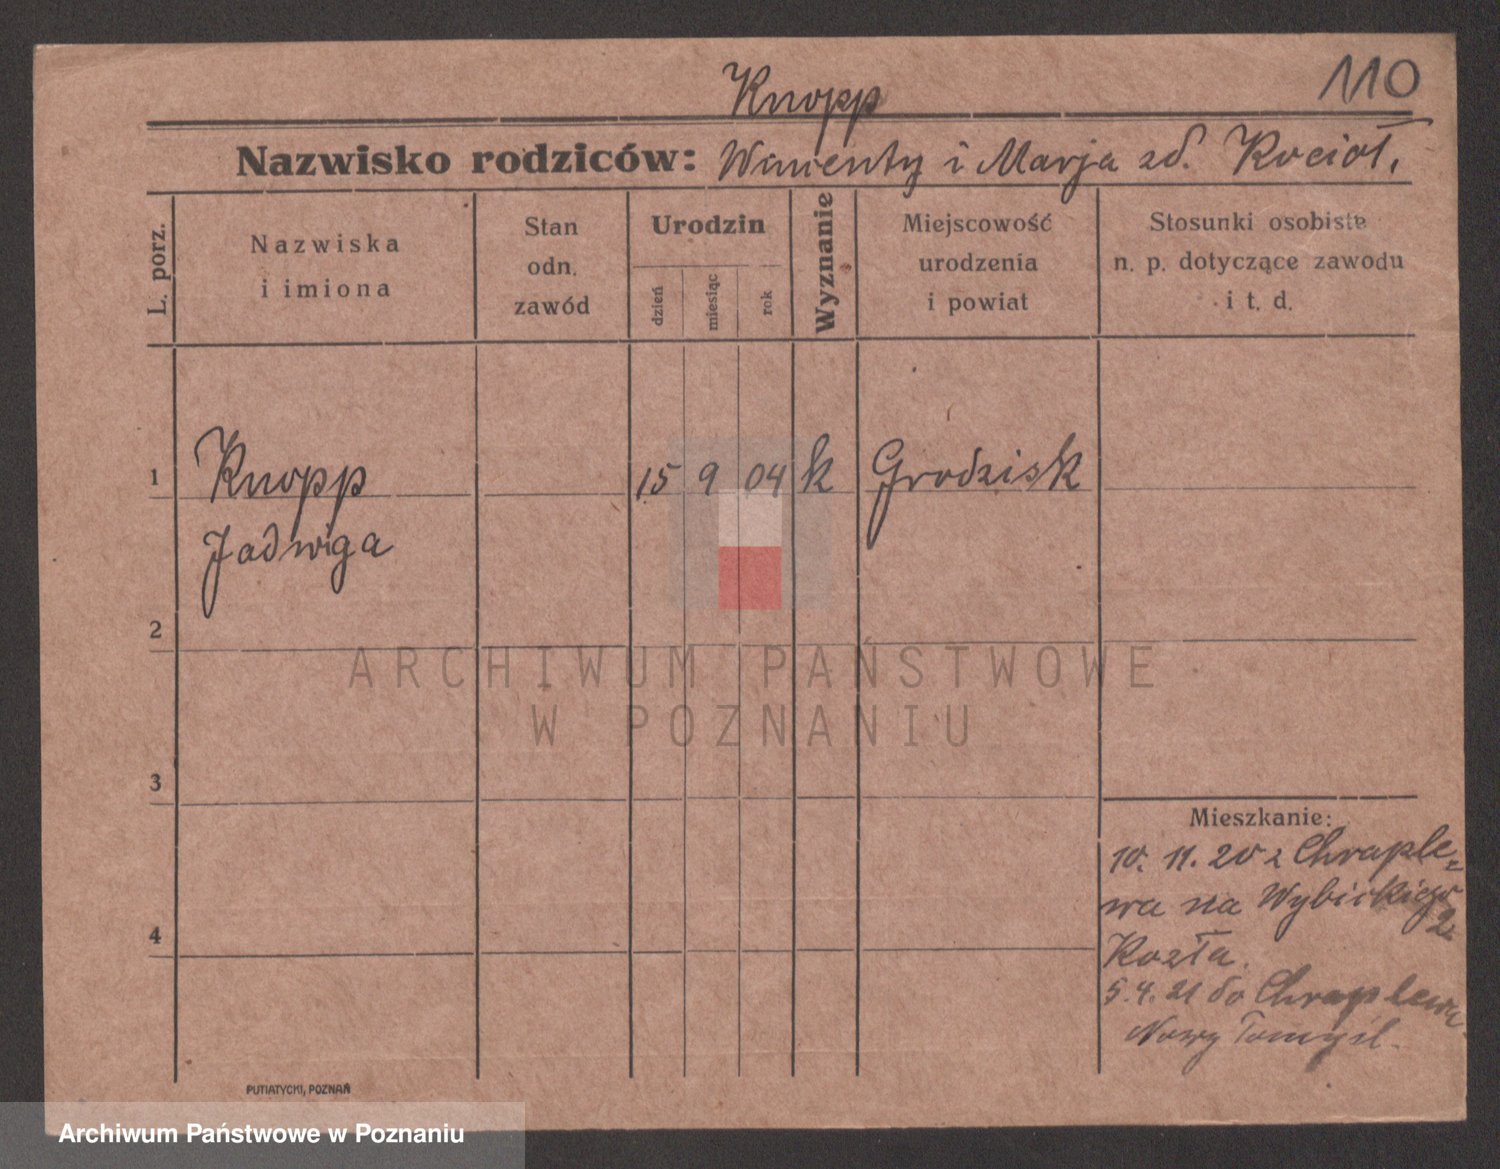 110
Knopp
Nazwisko rodziców: Wincenty i Marja zd. Kocioł.
L. porz.
Nazwiska
i imiona
Stan
odn.
zawód
Urodzin
dzień
miesiąc
rok
Wyznanie
Miejscowość
urodzenia
i powiat
Stosunki osobiste
n. p. dotyczące zawodu
i t. d.
1 Knopp 15 9 04 k Grodzisk
Jadwiga
2
ARCHIWUM PAŃSTWOWE
W POZNANIU
3
Mieszkanie:
10. 11. 20 z Chraple-
wa na Wybickiego
2.
4
5.4.21 do Chraplewa
Nowy Tomyśl.
PUTIATYCKI, POZNAŃ
Archiwum Państwowe w Poznaniu